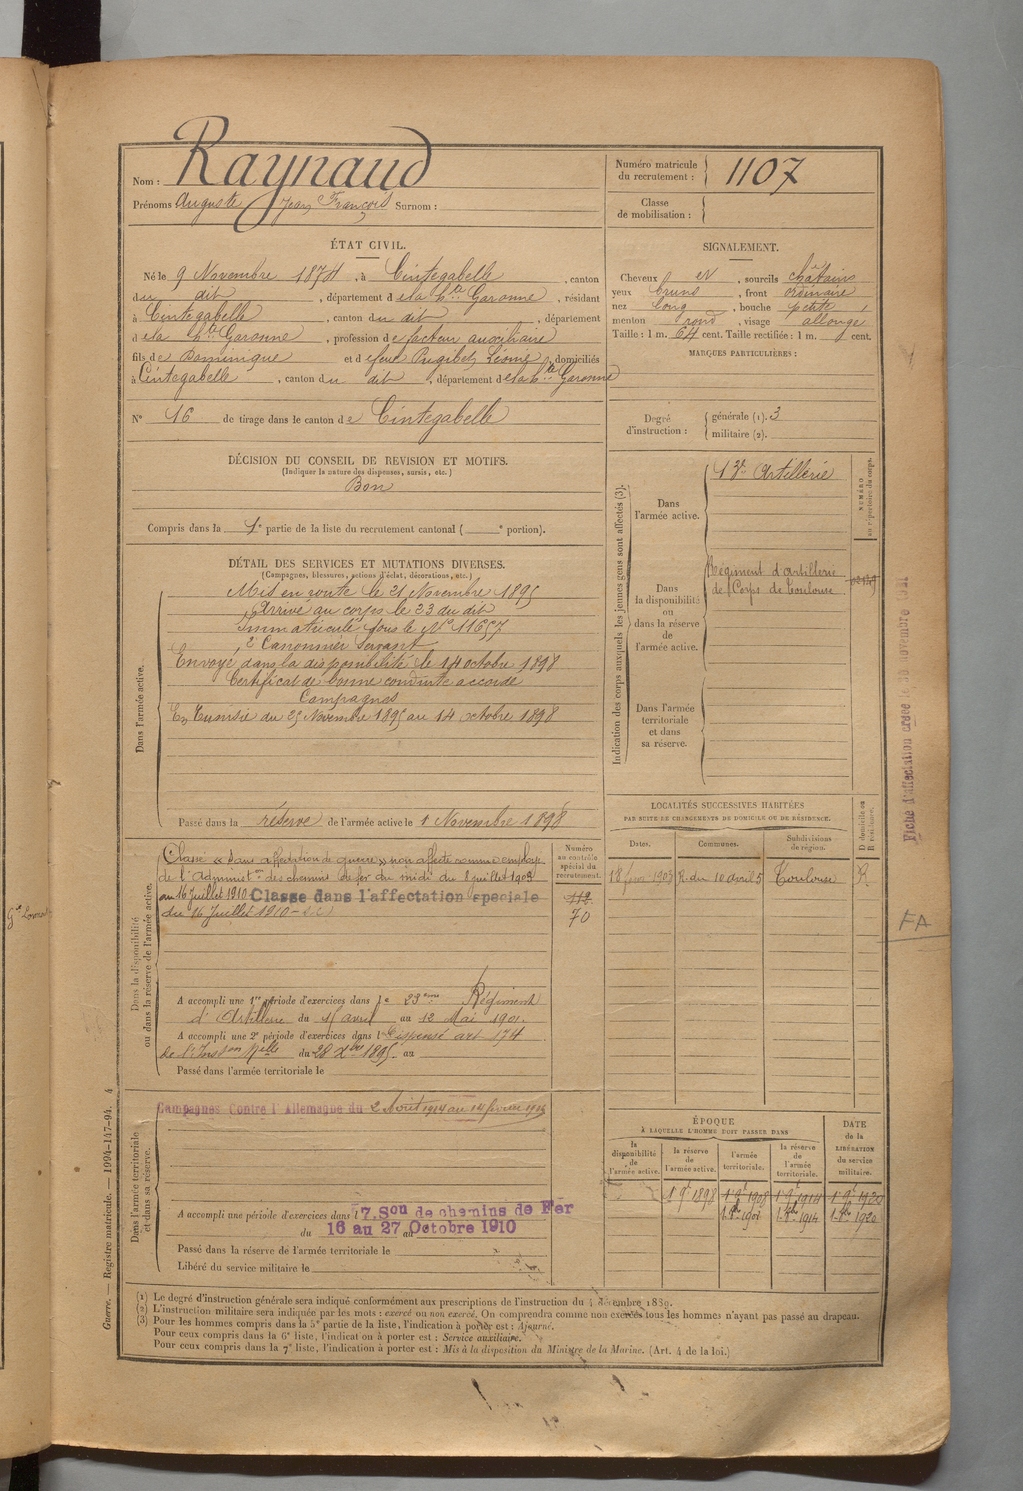 Nom : Raynaud
Prénoms Auguste Jean François Surnom :
Numéro matricule du recrutement : 1107
Classe de mobilisation :
ÉTAT CIVIL.
Né le 9 Novembre 1874, à Cintegabelle, canton
du dit, département de la hte Garonne, résidant
à Cintegabelle, canton du dit, département
de la hte Garonne, profession de facteur auxiliaire
fils de Dominique et de feue Pugibet, domiciliés
à Cintegabelle, canton du dit, département de la hte Garonne
N° 16 de tirage dans le canton de Cintegabelle
SIGNALEMENT.
Cheveux et, sourcils châtains
yeux bruns, front ordinaire
nez long, bouche petite,
menton rond, visage allongé
Taille : 1 m. 64 cent. Taille rectifiée : 1 m. cent.
MARQUES PARTICULIÈRES :
Degré d'instruction :
générale (1). 3
militaire (2).
DÉCISION DU CONSEIL DE REVISION ET MOTIFS.
(Indiquer la nature des dispenses, sursis, etc.)
Bon
Compris dans la 1e partie de la liste du recrutement cantonal ( e portion).
DÉTAIL DES SERVICES ET MUTATIONS DIVERSES.
(Campagnes, blessures, actions d'éclat, décorations, etc.)
Dans l'armée active.
Mis en route le 21 Novembre 1895
Arrivé au corps le 23 du dit
Immatriculé sous le N° 11657
2e Canonnier Servant
Envoyé dans la disponibilité le 14 octobre 1898
Certificat de bonne conduite accordé
Campagnes
En Tunisie du 25 Novembre 1895 au 14 octobre 1898
Passé dans la réserve de l'armée active le 1 Novembre 1898
Indication des corps auxquels les jeunes gens sont affectés (3).
NUMÉRO au répertoire du corps.
Dans l'armée active.
13e Artillerie
Dans la disponibilité ou dans la réserve de l'armée active.
Régiment d'Artillerie
de Corps de Toulouse
Dans l'armée territoriale et dans sa réserve.
Fiche d'affectation créée le 30 novembre 1921
Dans la disponibilité ou dans la réserve de l'armée active.
Classé « sans affectation de guerre » non affecté comme employé
de l'Administon des chemins de fer du midi du 8 juillet 1903
au 16 Juillet 1910 Classé dans l'affectation spéciale
du 16 Juillet 1910 -
Numéro au contrôle spécial du recrutement.
112
70
A accompli une 1re période d'exercices dans le 23eme Régiment
d'Artillerie du 15 avril au 12 Mai 1901.
A accompli une 2e période d'exercices dans l Dispensé art 174
de l'Inston Melle du 28 Xbre 1895. au
Passé dans l'armée territoriale le
LOCALITÉS SUCCESSIVES HABITÉES
PAR SUITE DE CHANGEMENTS DE DOMICILE OU DE RÉSIDENCE.
Dates. Communes. Subdivisions de région. D domicile ou R résidence.
18 févr 1903 R. du 10 avril 5 Toulouse R
FA
Dans l'armée territoriale et dans sa réserve.
Campagnes Contre l'Allemagne du 2 Août 1914 au 14 février 1916
A accompli une période d'exercices dans l 7. Son de chemins de Fer
du 16 au 27 Octobre 1910
Passé dans la réserve de l'armée territoriale le
Libéré du service militaire le
ÉPOQUE
À LAQUELLE L'HOMME DOIT PASSER DANS
la disponibilité de l'armée active. la réserve de l'armée active. l'armée territoriale. la réserve de l'armée territoriale.
DATE de la LIBÉRATION du service militaire.
1 9e 1898 1 9e 1908 1 9e 1914 1 9e 1920
1914 1920
(1) Le degré d'instruction générale sera indiqué conformément aux prescriptions de l'instruction du 4 décembre 1889.
(2) L'instruction militaire sera indiquée par les mots : exercé ou non exercé. On comprendra comme non exercés tous les hommes n'ayant pas passé au drapeau.
(3) Pour les hommes compris dans la 5e partie de la liste, l'indication à porter est : Ajourné.
Pour ceux compris dans la 6e liste, l'indication à porter est : Service auxiliaire.
Pour ceux compris dans la 7e liste, l'indication à porter est : Mis à la disposition du Ministre de la Marine. (Art. 4 de la loi.)
Guerre. — Registre matricule. — 1994-147-94. 4